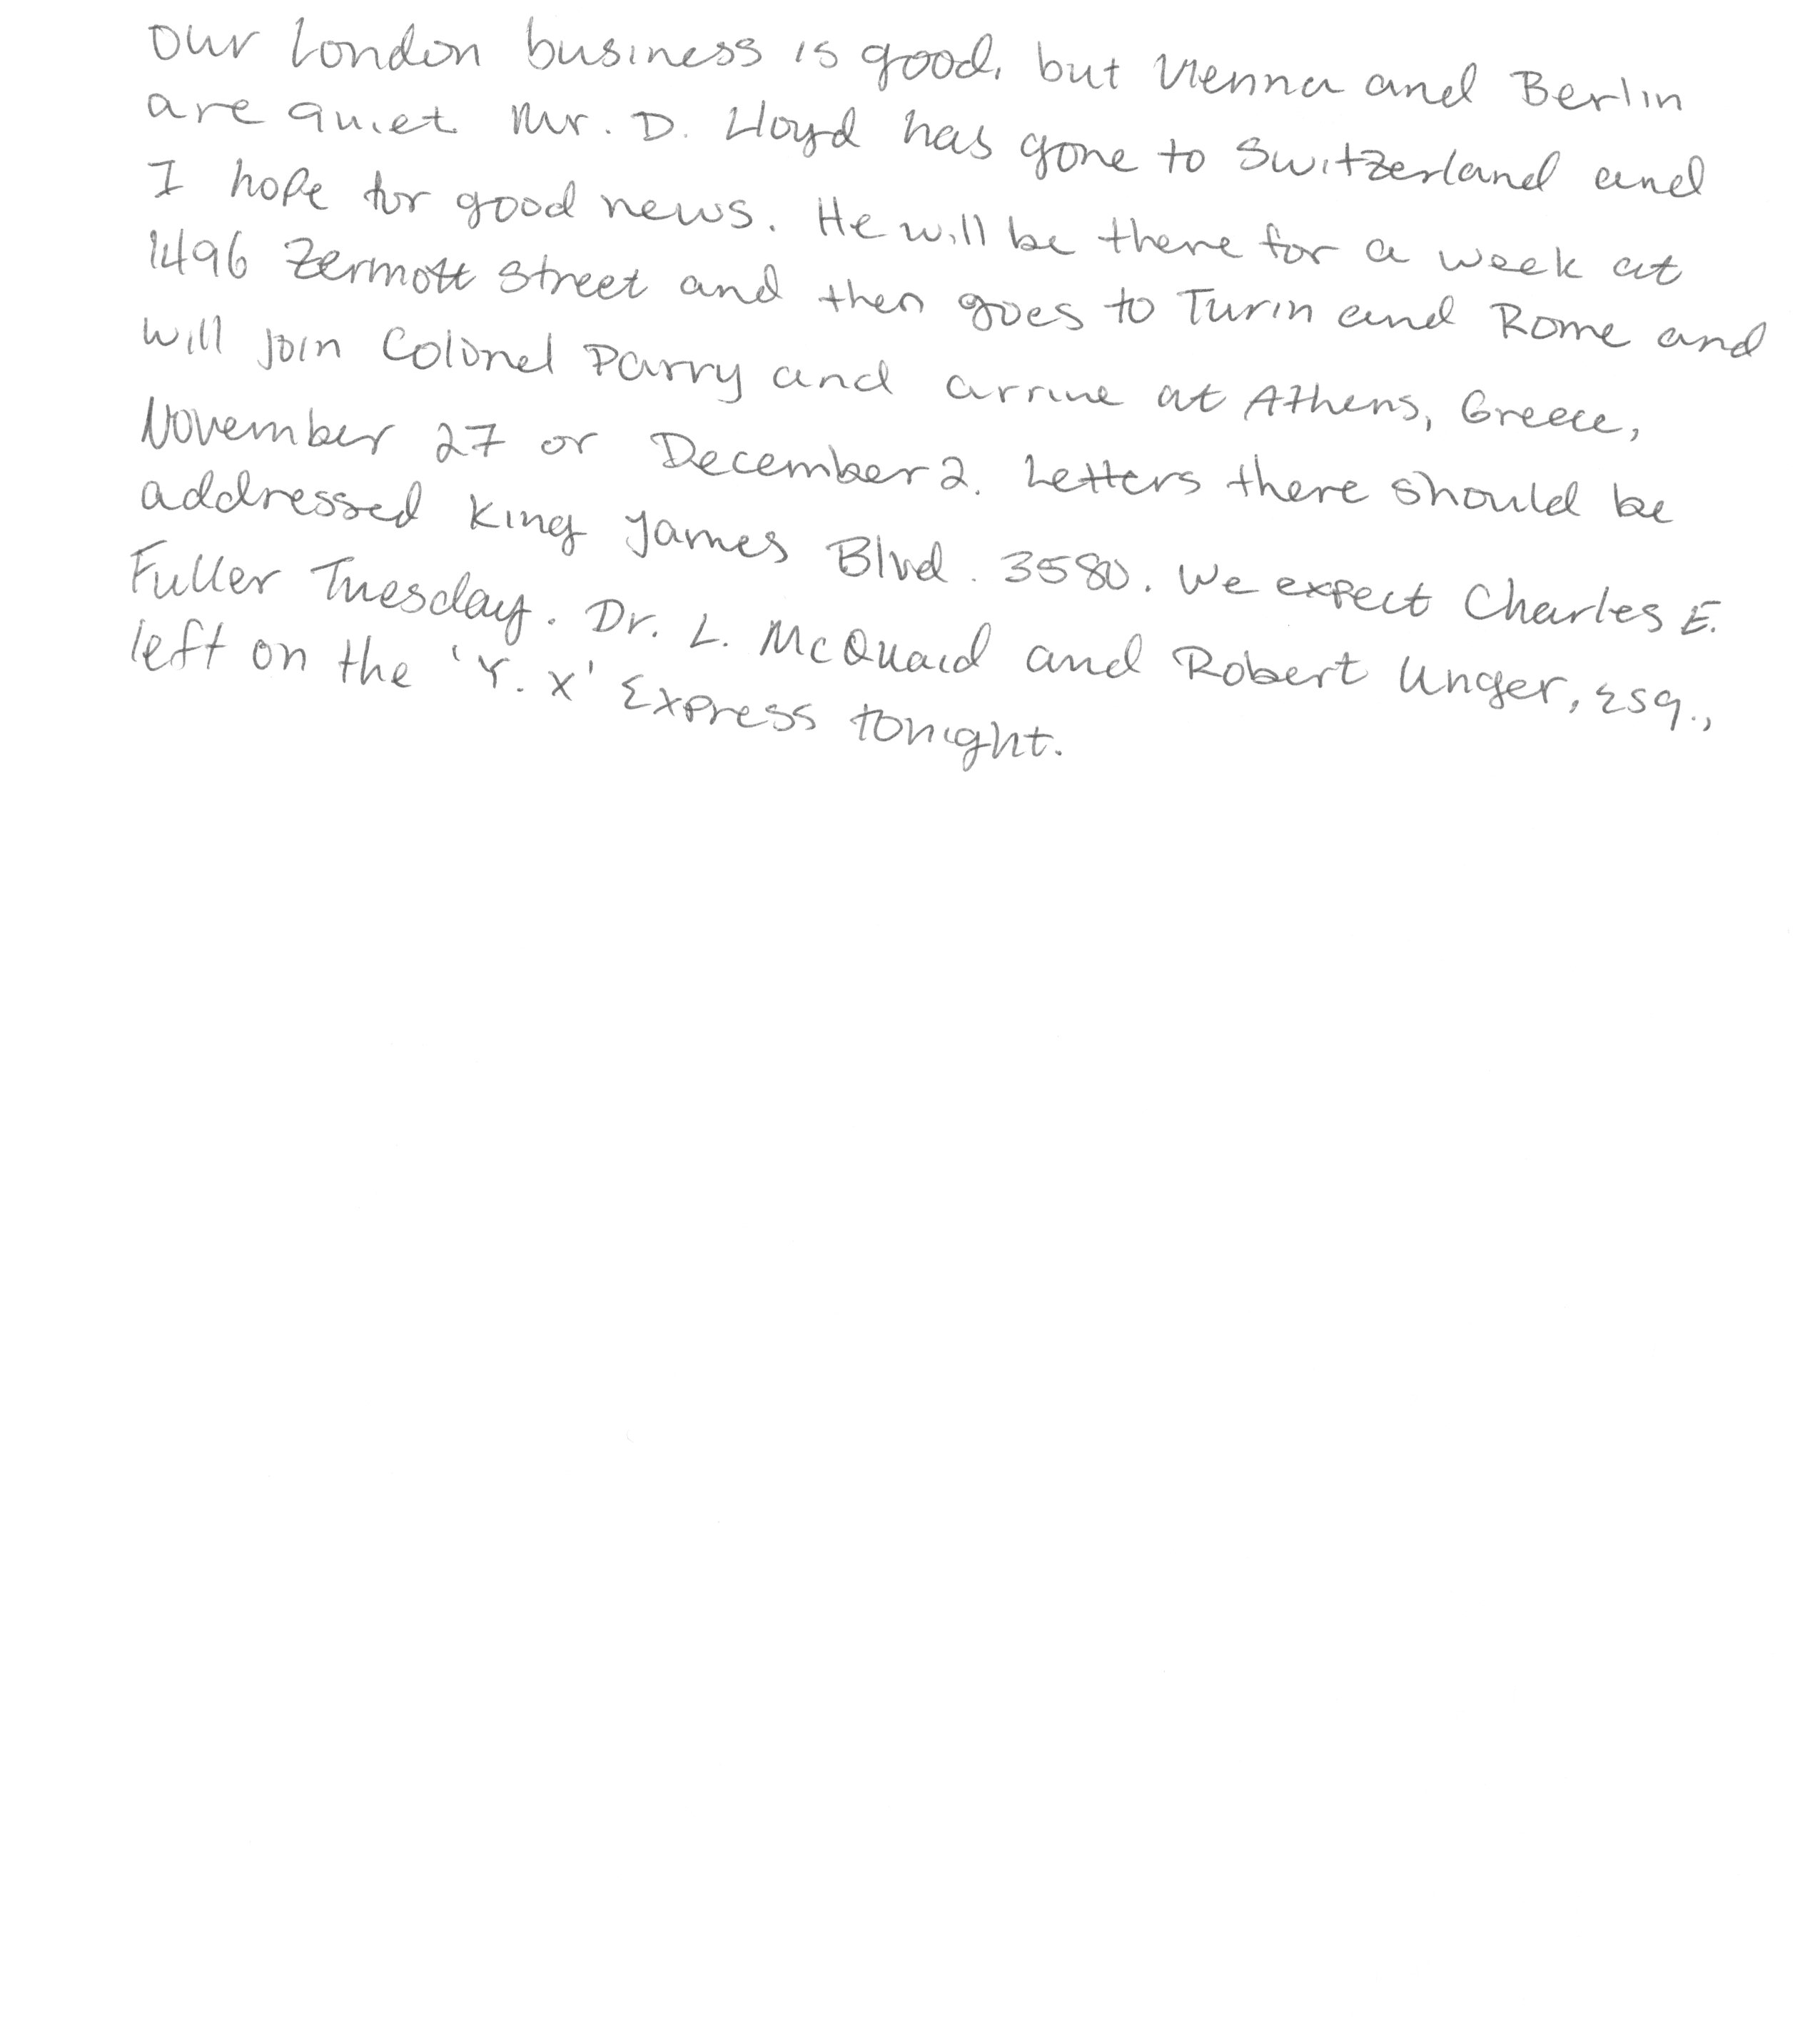 Our London business is good, but Vienna and Berlin
are quiet. Mr. D. Lloyd has gone to Switzerland and
I hope for good news. He will be there for a week at
1496 Zermott Street and then goes to Turin and Rome and
will join Colonel Parry and arrive at Athens, Greece,
November 27 or December 2. Letters there should be
addressed King James Blvd. 3580. We expect Charles E.
Fuller Tuesday. Dr. L. McQuaid and Robert Unger, Esq.,
left on the 'Y. X' Express tonight.